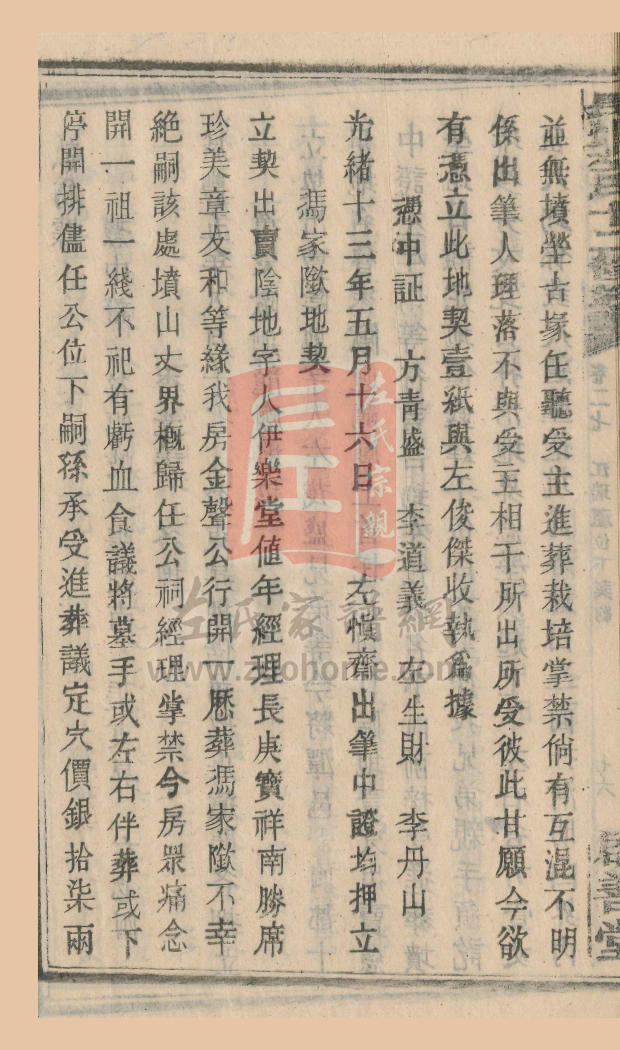 並無墳塋古塚任聽受主進葬栽培掌禁倘有互混不明
係出筆人理落不與受主相干所出所受彼此甘願今欲
有憑立此地契壹紙與左俊傑收執爲據
憑中証 方青盛 李道義 左生財 李丹山
光緒十三年五月十六日 左慎齋出筆中證均押立
馮家隞地契
立契出賣陰地字人伊樂堂値年經理長庚寶祥南勝席
珍美章友和等緣我房金聲公行開一厐葬馮家隞不幸
絶嗣該處墳山丈界概歸任公祠經理掌禁今房衆痛念
開一祖一綫不祀有虧血食議將墓手或左右伴葬或下
停開排儘任公位下嗣孫承受進葬議定穴價銀拾柒兩
卷二七
十六
善堂
左氏宗親
左氏家譜網
www.zuohome.com